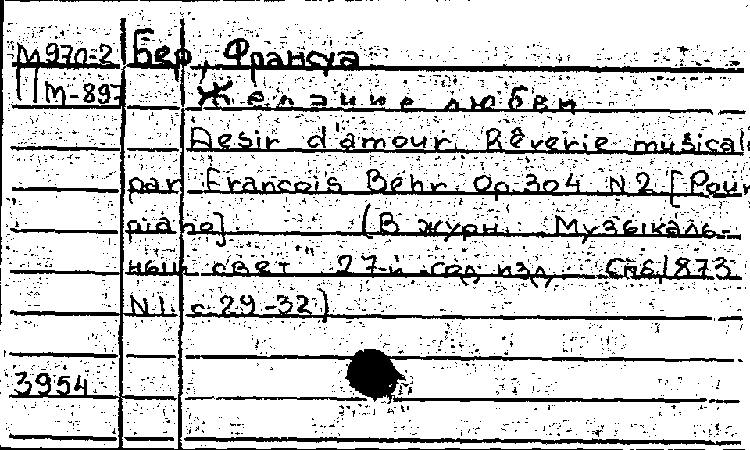 М970-2 Бер, Франсуа
М-897 Желание любви
Desir d'amour. Rêverie musical
par François Behr. Op. 304 N 2 [Pour
piano] (В журн. Музыкаль-
ный свет" 27-й год изд. СПб, 1873
N 1. с. 29-32)
3954